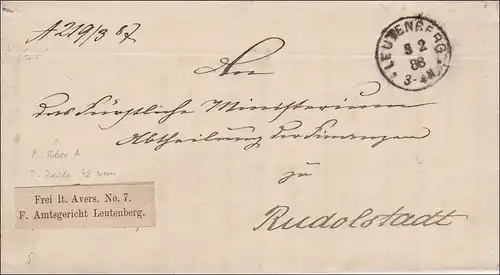 A 219/3 87
* LEUTENBERG *
8 2
88
3-4N.
An
das Fürstliche Ministerium
Abtheilung der Finanzen
F. über A
zu
Frei lt. Avers. No. 7.
F. Amtsgericht Leutenberg.
Rudolstadt
5